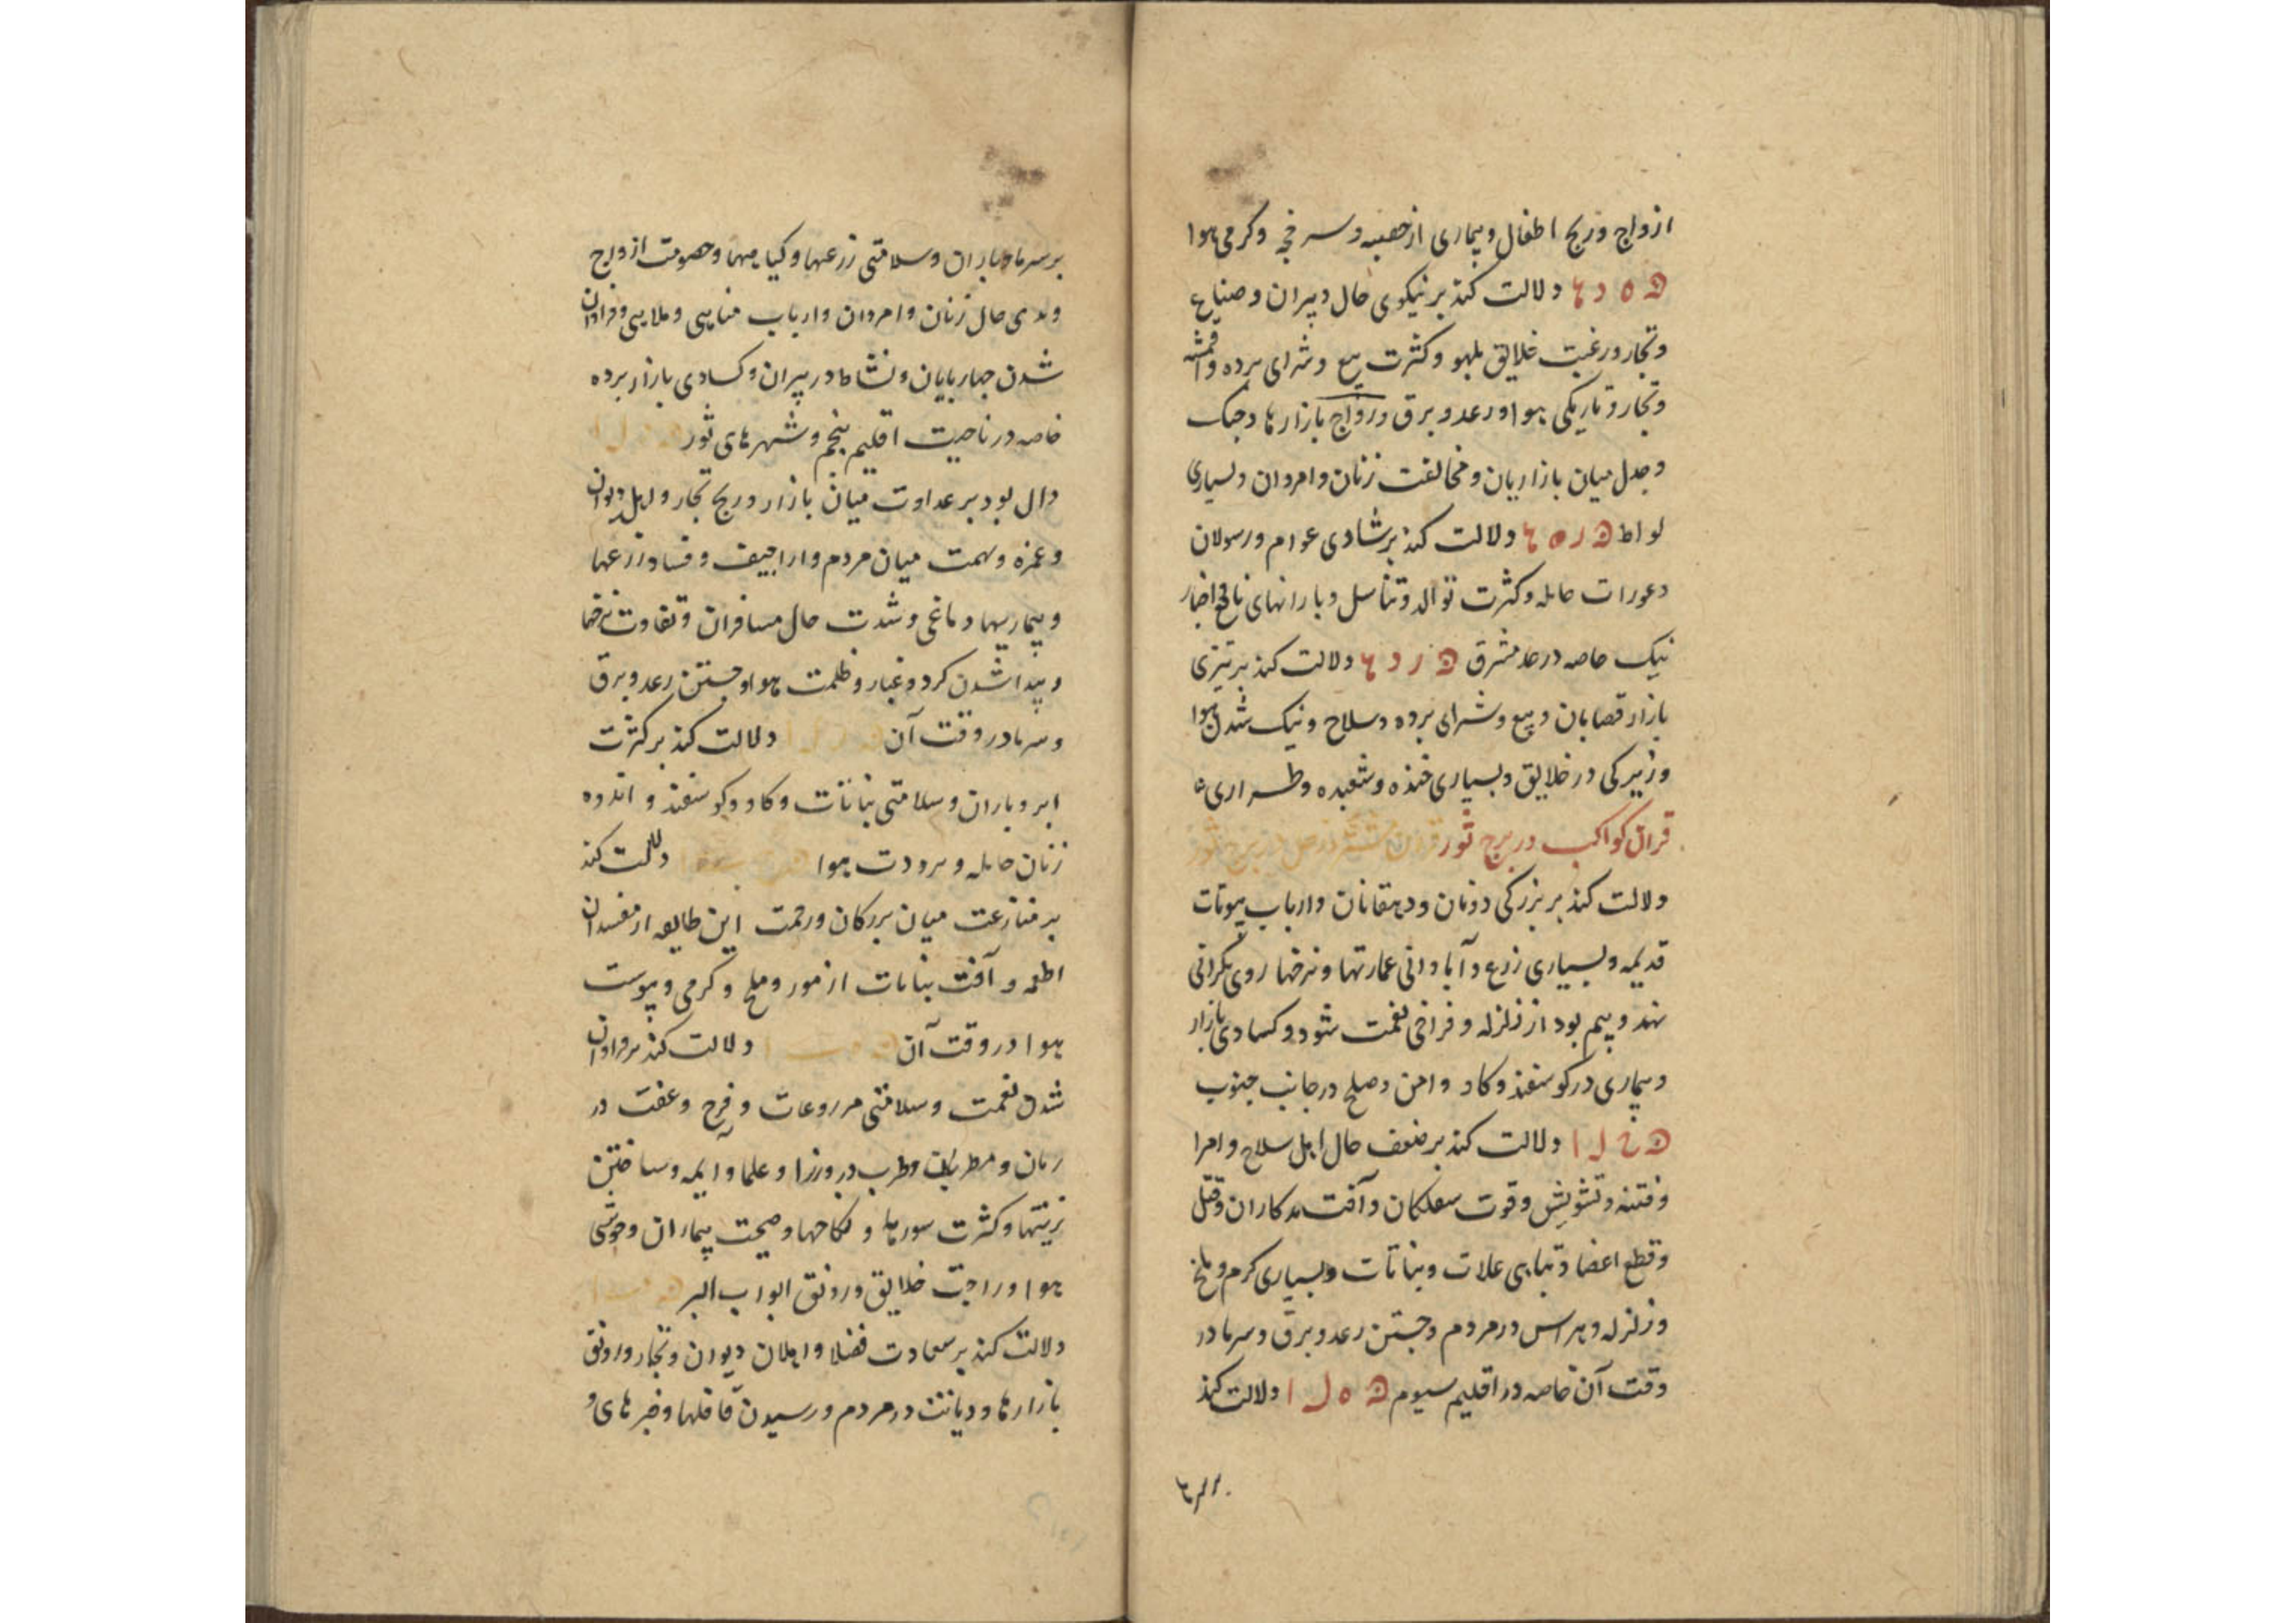 ازواج و رنج اطفال و بیماری از حصبه و سرخجه و کرمی هوا
دلالت کند بر نیکوی حال دبیران و صناع
و تجار و رغبت خلایق بلهو و کثرت بیع و شرای برده و اقمشه
و تجار و تاریکی هوا و رعد و برق و رواج بازارها و جنک
و جدل میان بازاریان و مخالفت زنان و امردان و بسیاری
لواط دلالت کند بر شادی عوام و رسولان
و عورات حامله و کثرت توالد و تناسل و بارانهای نافع و اخبار
نیک خاصه در حد مشرق دلالت کند بر تیزی
بازار قصابان و بیع و شرای برده و سلاح و نیک شدن هوا
و زیرکی در خلایق و بسیاری خنده و شعبده و طراری
قران کواکب در برج ثور
دلالت کند بر بزرکی دونان و دهقانان و ارباب بیوتات
قدیمه و بسیاری زرع و آبادانی عمارتها و نرخها روی بکرانی
نهد و بیم بود از زلزله و فراخی نعمت شود و کسادی بازار
و بیماری در کوسفند و کاو و امن و صلح در جانب جنوب
دلالت کند بر ضعف حال اهل سلاح و امرا
و فتنه و تشویش و قوت سفلکان و آفت بدکاران و قتل
و قطع اعضا و تباهی غلات و نباتات و بسیاری کرم و ملخ
و زلزله و هراس در مردم و جستن رعد و برق و سرما در
وقت آن خاصه در اقلیم سیوم دلالت کند
بر سرما و باران و سلامتی زرعها و کیاهیها و خصومت ازواج
و بدی حال زنان و امردان و ارباب مناهی و ملاهی و فراوان
شدن چهارپایان و نشاط در پیران و کسادی بازار برده
خاصه در ناحیت اقلیم پنجم و شهرهای ثور
دال بود بر عداوت میان بازار و رنج تجار و اهل دیوان
و غمزه و تهمت میان مردم و اراجیف و فساد زرعها
و بیماریهاء دماغی و شدت حال مسافران و تفاوت نرخها
و پیدا شدن کرد و غبار و ظلمت هوا و جستن رعد و برق
و سرما در وقت آن دلالت کند بر کثرت
ابر و باران و سلامتی نباتات و کاو و کوسفند و اندوه
زنان حامله و برودت هوا دلالت کند
بر منازعت میان بزرکان و زحمت این طایفه از مفسدان
اطعمه و آفت نباتات از مور و ملخ و کرمی و یبوست
هوا در وقت آن دلالت کند بر فراوان
شدن نعمت و سلامتی مزروعات و فرح و عفت در
زنان و مطربان و طرب در وزرا و علما و ایمه و ساختن
زینتها و کثرت سورها و نکاحها و صحت بیماران و خوشی
هوا و راحت خلایق و رونق ابواب البر
دلالت کند بر سعادت فضلا و اهلان دیوان و تجار و رونق
بازارها و دیانت در مردم و رسیدن قافلها و خبرهای